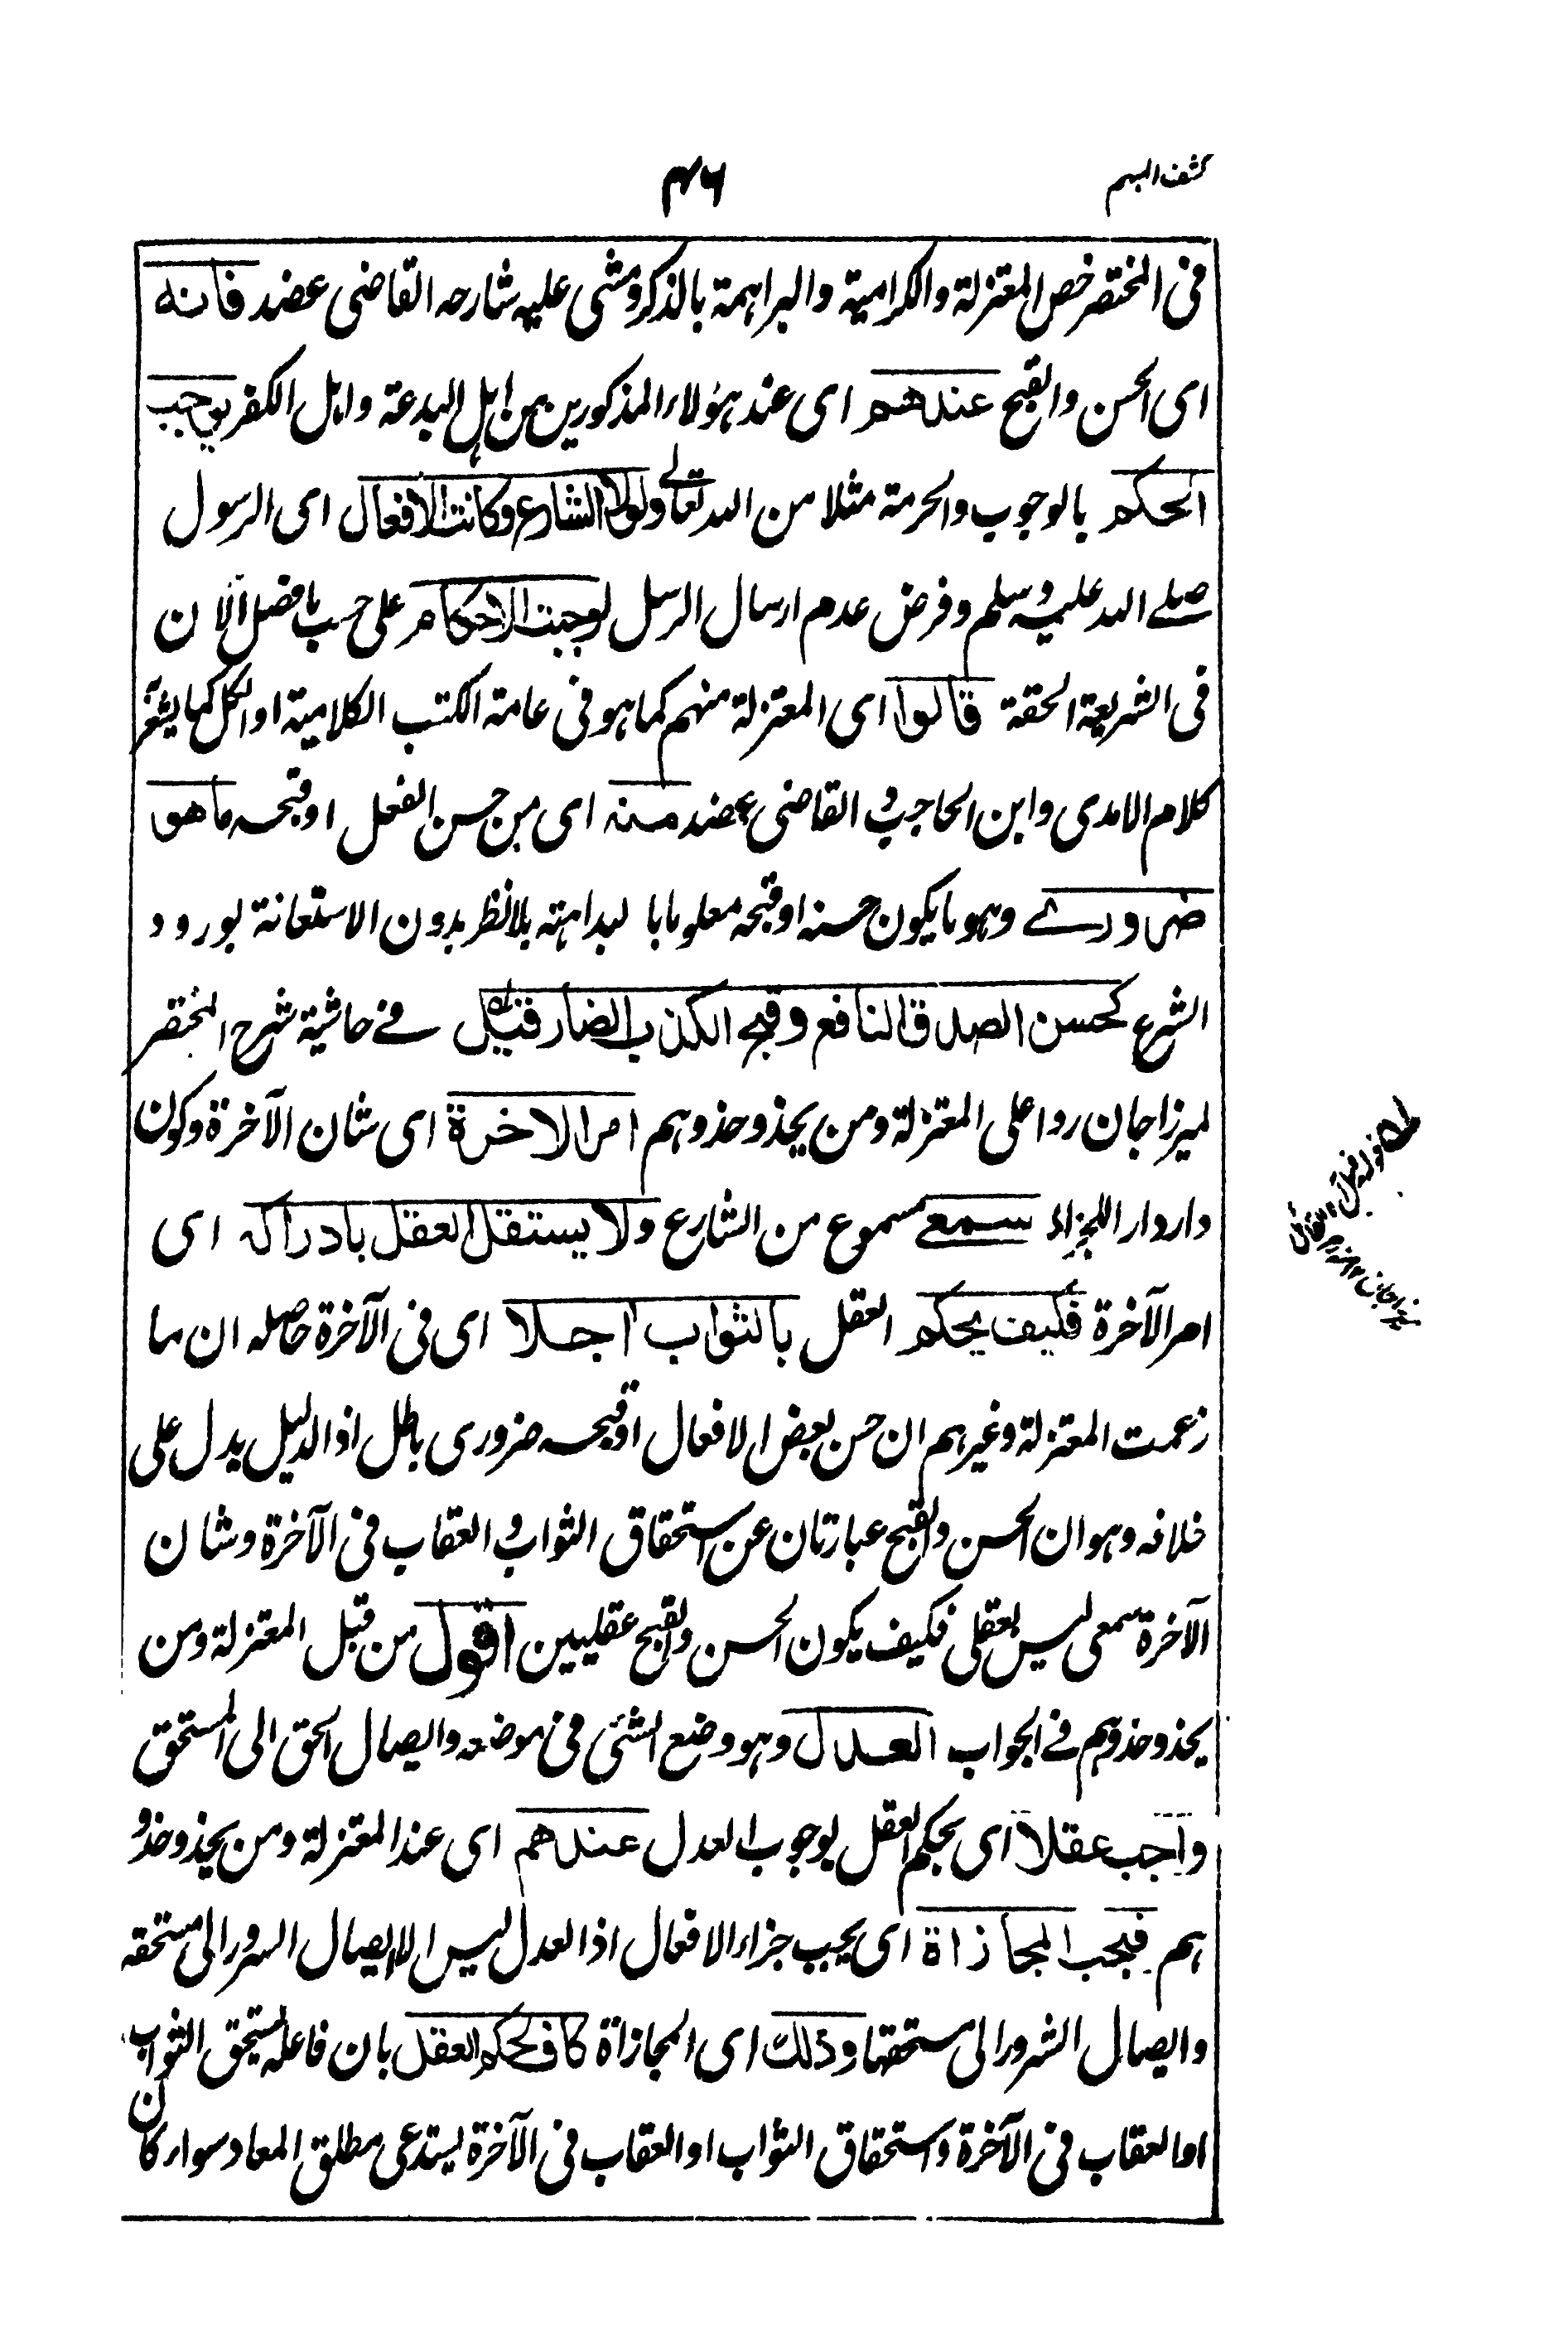 كشف المبهم
٤٦
فى المختصر خص المعتزلة والكرامية والبراهمة بالذكر ومشى عليه شارحه القاضى عضد فانه
اى الحسن والقبح عندهم اى عند هؤلاء المذكورين من اهل البدعة واهل الكفر يوجب
الحكم بالوجوب والحرمة مثلا من الله تعالے ولولا الشارع وكانت الافعال اى الرسول
صلے الله عليه وسلم وفرض عدم ارسال الرسل لوجبت الاحكام على حسب ما فصل الآن
فى الشريعة الحقة قالوا اى المعتزلة منهم كما هو فى عامة الكتب الكلامية او الكل كما يشعر
كلام الامدى وابن الحاجب و القاضى عضد منه اى من حسن الفعل او قبحه ما هو
ضرورے وهو ما يكون حسنه او قبحه معلوما بالبداهته بلا نظر بدون الاستعانة بورود
الشرع كحسن الصدق النافع وقبح الكذب الضار قيل فے حاشية شرح المختصر
لميرزا جان ردا على المعتزلة ومن يحذو حذوهم امر الاخرة اى شان الآخرة وكون
دار دار الجزاء سمعے مسموع من الشارع ولا يستقل العقل بادراكه اى
امر الآخرة فكيف يحكم العقل بالثواب اجلا اى فى الآخرة حاصله ان ما
زعمت المعتزلة وغيرهم ان حسن بعض الافعال او قبحه ضرورى باطل اذ الدليل يدل على
خلافه وهو ان الحسن والقبح عبارتان عن استحقاق الثواب و العقاب فى الآخرة وشان
الآخرة سمعى ليس بعقلى فكيف يكون الحسن والقبح عقليين اقول من قبل المعتزلة ومن
يحذو حذوهم فے الجواب العدل وهو وضع الشئ فى موضعه وايصال الحق الى المستحق
واجب عقلا اى يحكم العقل بوجوب العدل عندهم اى عند المعتزلة ومن يحذو حذو
هم فيجب المجازاة اى يجب جزاء الافعال اذ العدل ليس الا ايصال السرور الى مستحقه
وايصال الشرور الى مستحقها وذلك اى المجازاة كاف لحكم العقل بان فاعله يستحق الثواب
او العقاب فى الآخرة واستحقاق الثواب او العقاب فى الآخرة يستدعى مطلق المعاد سواء كان